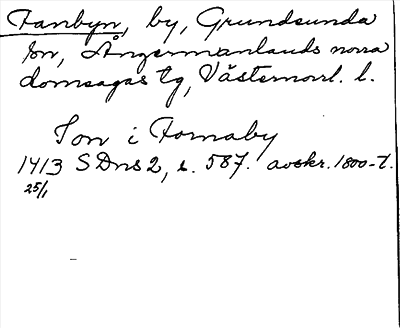 Fanbyn, by, Grundsunda
sn, Ångermanlands norra
domsagas tg, Västernorrl. l.
Son i Fornaby
1413 SDns 2, s. 587. avskr. 1800-t.
25/1